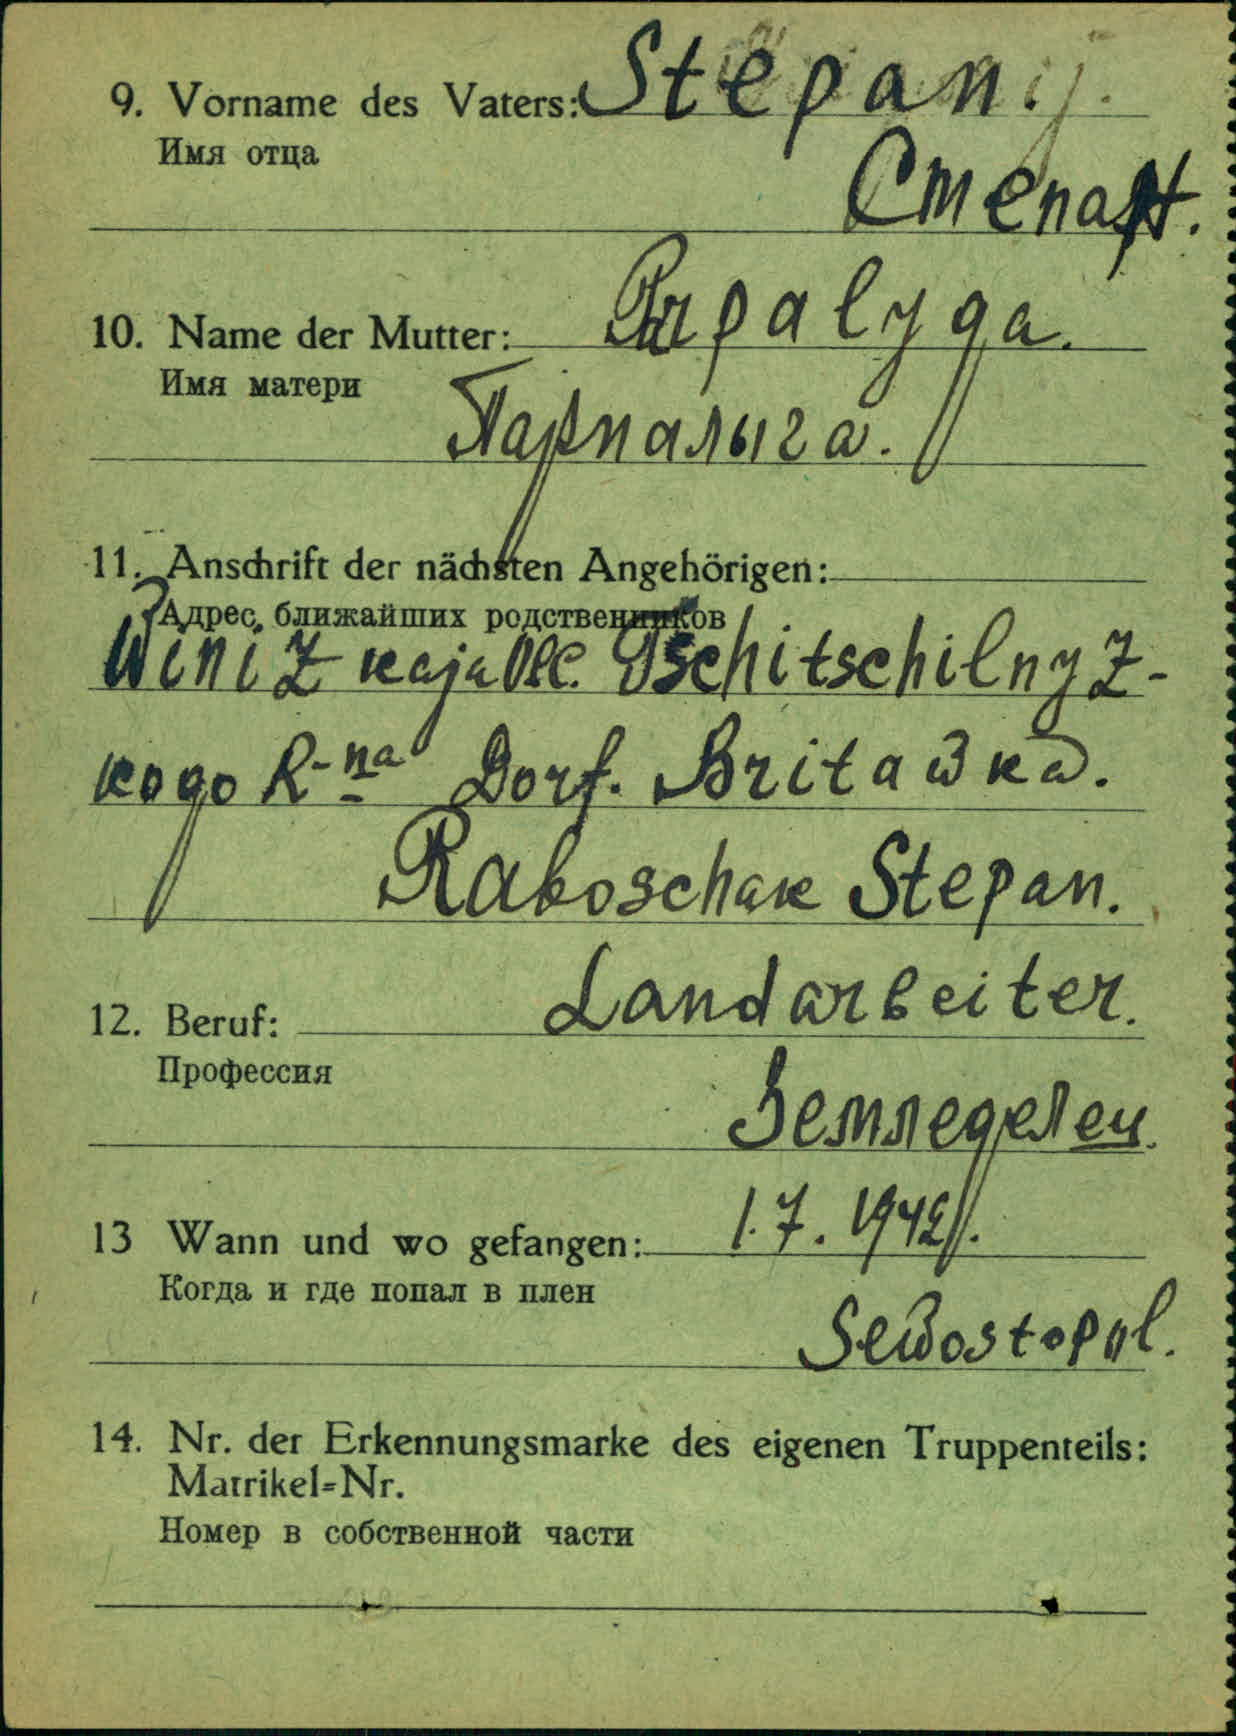 9. Vorname des Vaters: Stepan.
Имя отца
Степан.
10. Name der Mutter: Parpalyga.
Имя матери
Парпалыга.
11. Anschrift der nächsten Angehörigen:
Адрес ближайших родственников
WiniZkaja Obl. Tschitschilnyz-
kogo R-na Dorf. Britawka.
Raboschak Stepan.
Landarbeiter.
12. Beruf:
Профессия
Земледелец.
13 Wann und wo gefangen: 1.7.1942.
Когда и где попал в плен
Sewostopol.
14. Nr. der Erkennungsmarke des eigenen Truppenteils:
Matrikel=Nr.
Номер в собственной части